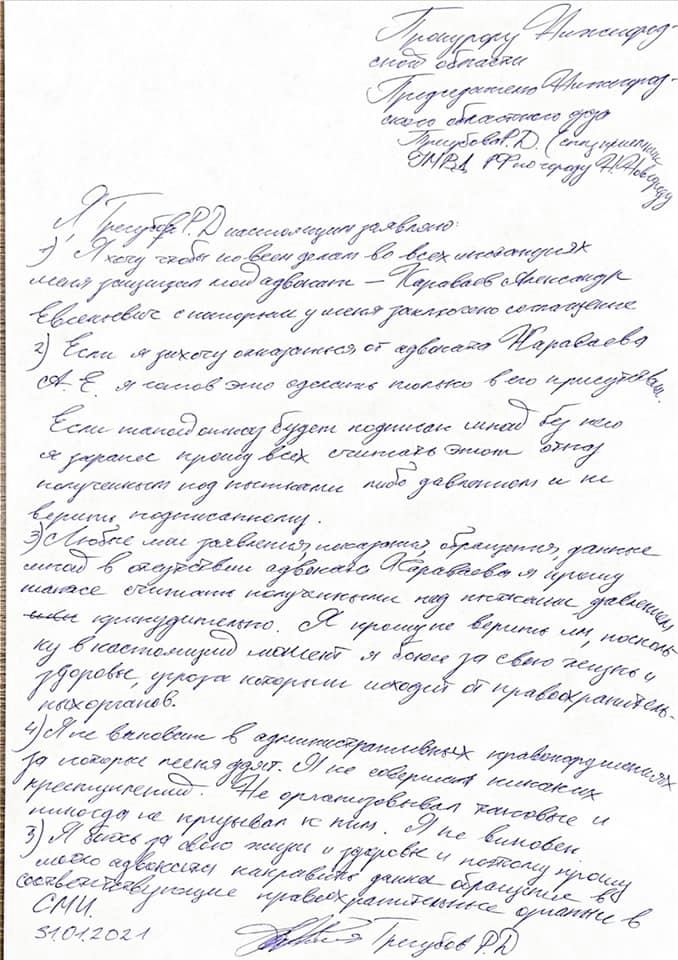 Прокурору Нижегород-
ской области
Председателю Нижегород-
ского областного суда
Трегубова Р.Д. (спецприемник
УМВД РФ по городу Н. Новгороду
Я, Трегубов Р.Д настоящим заявляю:
1) Я хочу чтобы по всем делам во всех инстанциях
меня защищал мой адвокат – Караваев Александр
Евгеньевич с которым у меня заключено соглашение
2) Если я захочу отказаться от адвоката Караваева
А.Е. я готов это сделать только в его присутствии.
Если такой отказ будет подписан мной без него
я заранее прошу всех считать этот отказ
полученным под пытками либо давлением и не
верить подписанному.
3) Любые мои заявления, показания, обращения, данные
мной в отсутствии адвоката Караваева я прошу
также считать полученными под пытками, давлением,
принудительно. Я прошу не верить им, посколь-
ку в настоящий момент я боюсь за свою жизнь и
здоровье, угроза которым исходит от правоохранитель-
ных органов.
4) Я не виноват в административных правонарушениях
за которые меня судят. Я не совершал никаких
преступлений. Не организовывал таковые и
никогда не призывал к ним. Я не виновен
5) Я боюсь за свою жизнь и здоровье и поэтому прошу
моего адвоката направить данное обращение в
соответствующие правоохранительные органы и в
СМИ.
31.01.2021
Трегубов Р.Д